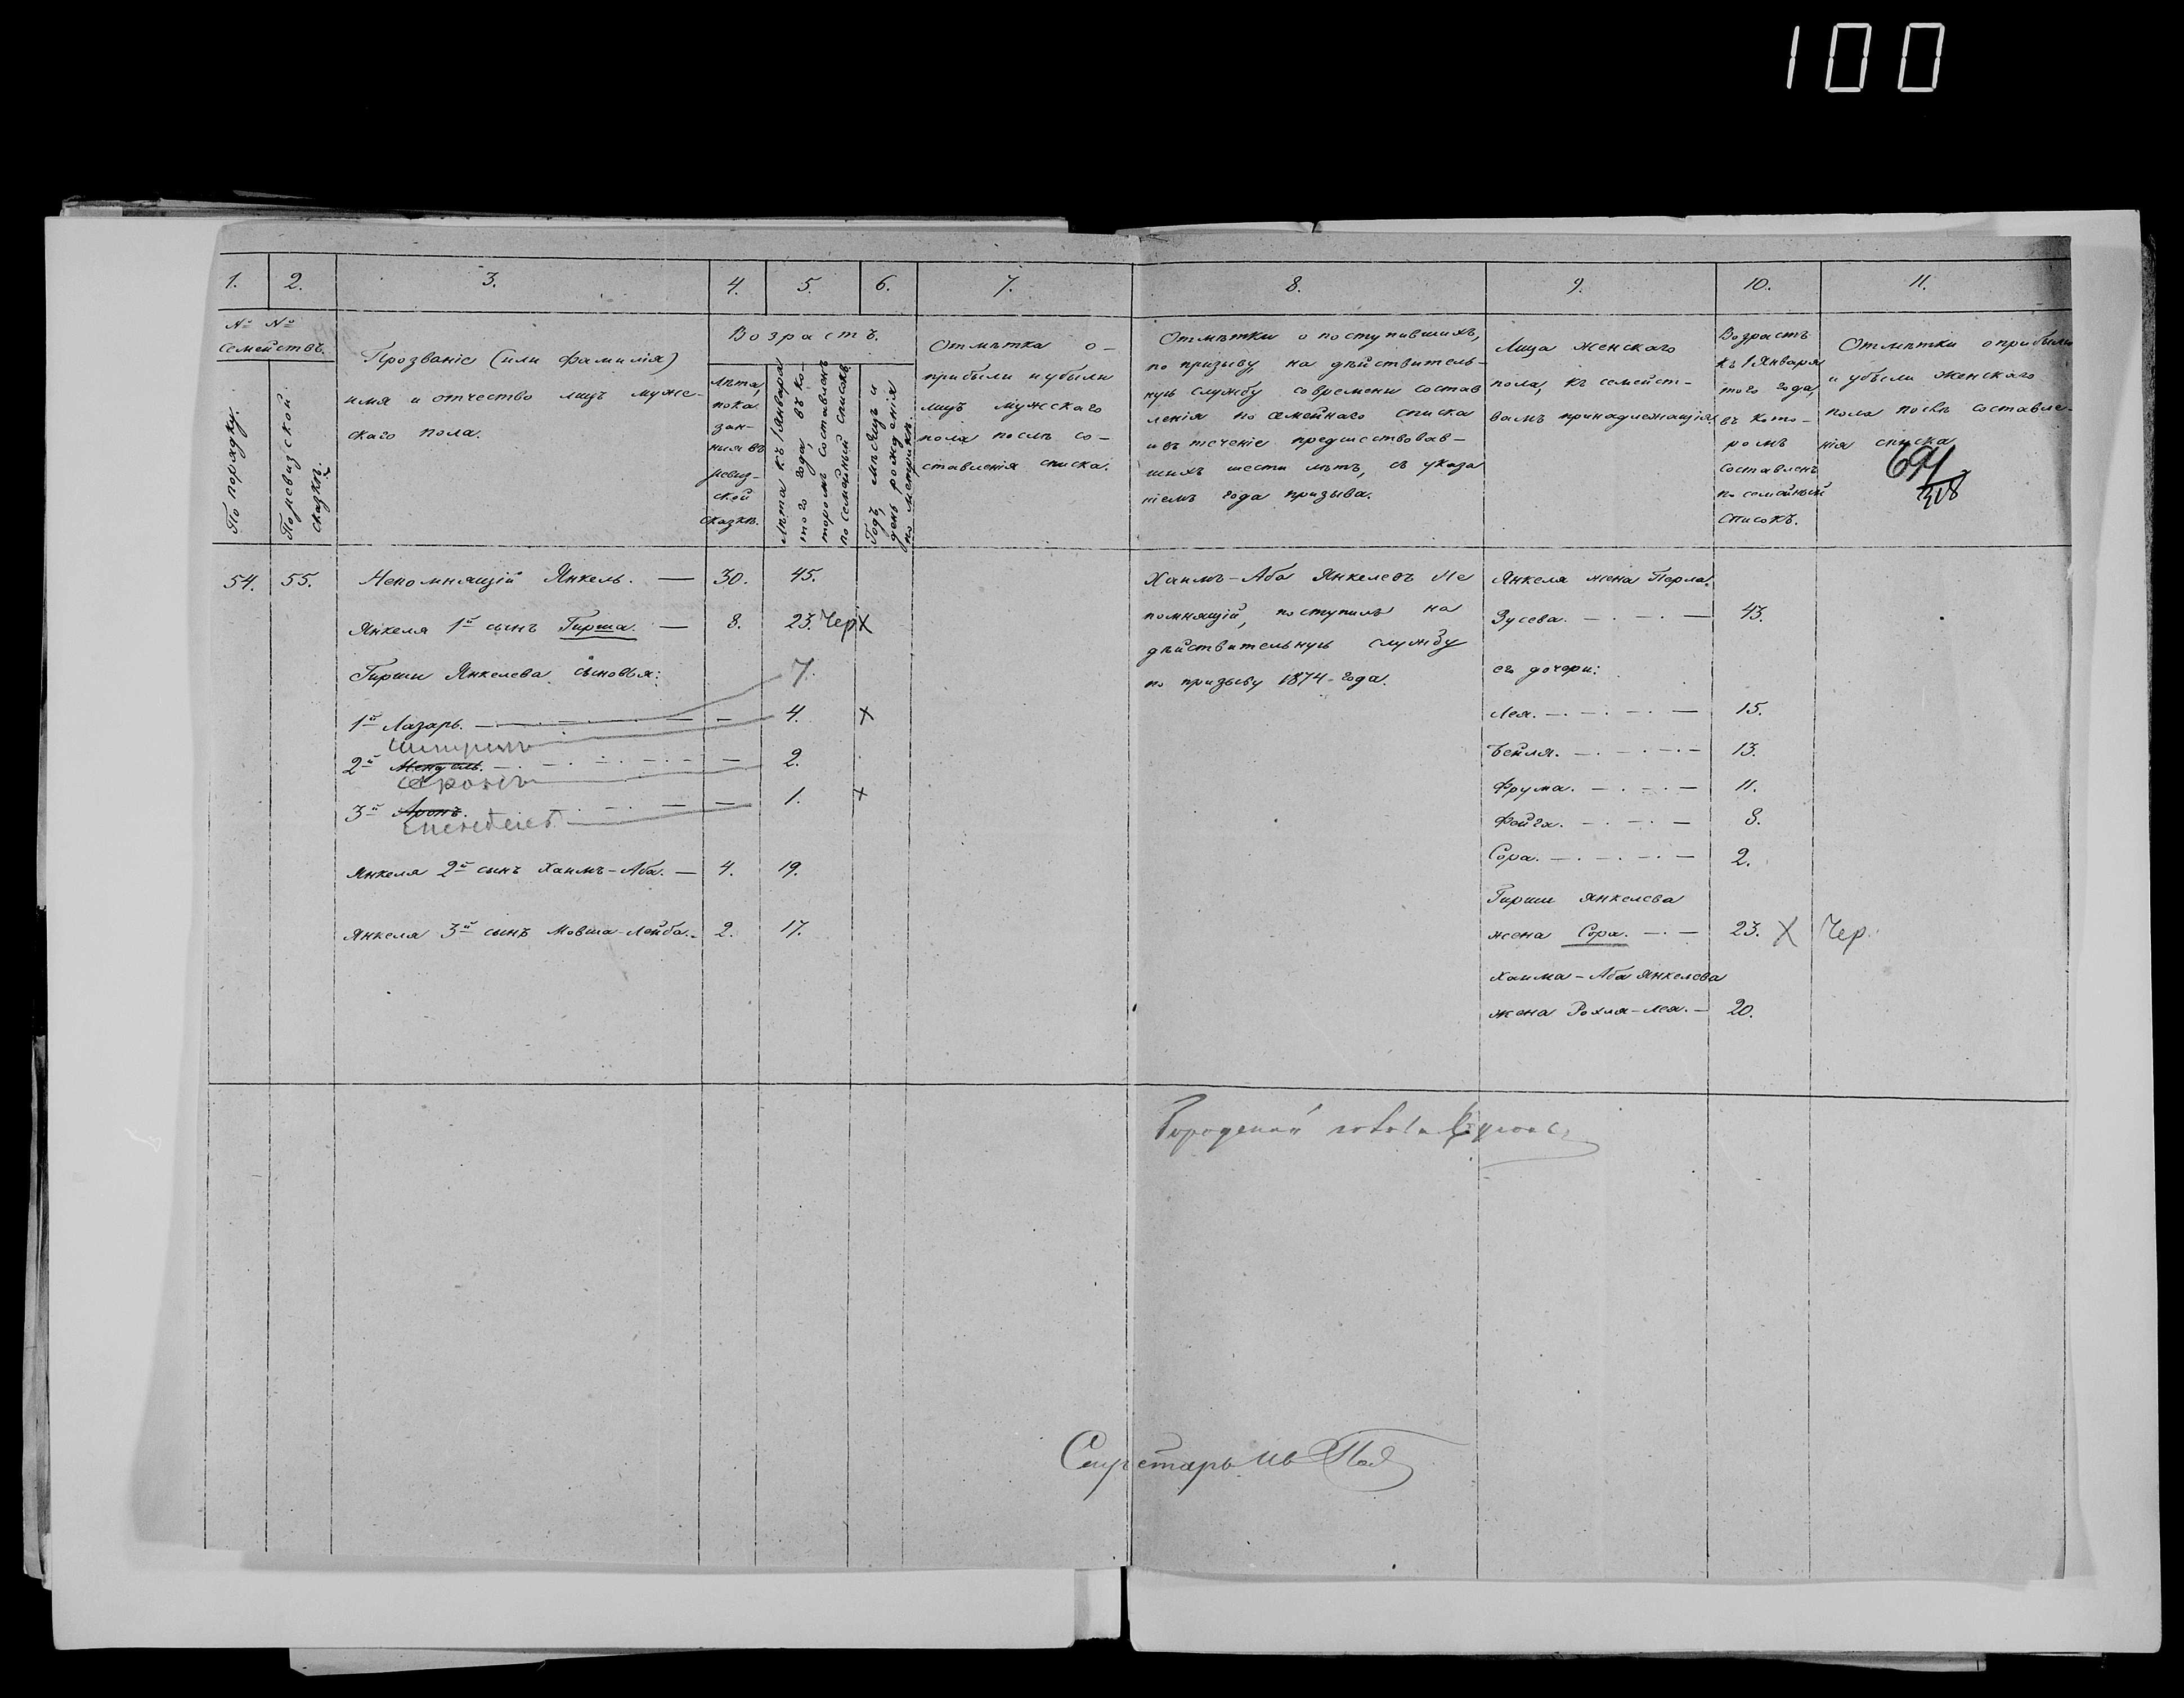 100
1. 2. 3. 4. 5. 6. 7. 8. 9. 10. 11.
№ №
семействъ.
По порядку.
По ревизской
сказкѣ.
Прозваніе (или фамилія)
имя и отчество лицъ муже-
скаго пола.
Возрастъ.
Лѣта,
пока
зан-
ныя въ
ревиз-
ской
сказкѣ.
Лѣта къ 1 Января
того года, въ ко-
торомъ составленъ
посемейный списокъ
Годъ, мѣсяцъ и
день рожденія
по метрикѣ.
Отмѣтка о-
прибыли и убыли
лицъ мужскаго
пола послѣ со-
ставленія списка.
Отмѣтки о поступившихъ,
по призыву на дѣйствитель-
ную службу со времени состав
ленія посемейнаго списка
и въ теченіе предшествовав-
шихъ шести лѣтъ, съ указа
ніемъ года призыва.
Лица женскаго
пола, къ семейст-
вамъ принадлежащія.
Возрастъ
къ 1 Января
того года,
въ кото-
ромъ
составленъ
посемейный
списокъ.
Отмѣтки о прибыли
и убыли женскаго
пола послѣ составле-
нія списка
54. 55. Непомнящій Янкель. — 30. 45.
Янкеля 1й сынъ Гирша. — 8. 23. Чер X
Гирши Янкелева сыновья: 7.
1й Лазарь. — 4. X
2й Мендель. — 2.
3й Аронъ. — 1. X
Янкеля 2й сынъ Хаимъ-Аба. — 4. 19.
Янкеля 3й сынъ Мовша-Лейба. - 2. 17.
Хаимъ-Аба Янкелевъ Не
помнящій, поступилъ на
дѣйствительную службу
по призыву 1874 года.
Янкеля жена Перла
Зусева. — 43.
его дочери:
Лея. — 15.
Бейля. — 13.
Фрума. — 11.
Фейга. — 8.
Сора. — 2.
Гирши Янкелева
жена Сора. — 23. X Чер.
Хаима-Аба Янкелева
жена Рохля-Лея. — 20.
Городской голова
Секретарь